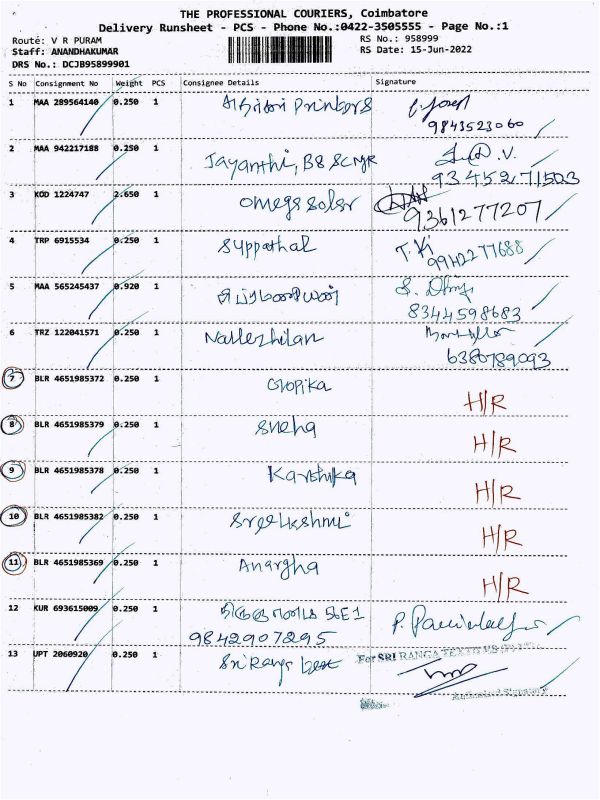 THE PROFESSIONAL COURIERS, Coimbatore
Delivery Runsheet - PCS - Phone No.:0422-3505555 - Page No.:1
Route: V R PURAM RS No.: 958999
Staff: ANANDHAKUMAR RS Date: 15-Jun-2022
DRS No.: DCJB95899901
S No Consignment No Weight PCS Consignee Details Signature
1 MAA 289564140 0.250 1 Printers
9843523060
2 MAA 942217188 0.250 1 Jayanthi,
9345271503
3 KOD 1224747 2.650 1 Omega Solar
9361277207
4 TRP 6915534 0.250 1 Suppathal
9942277688
5 MAA 565245437 0.920 1
8344598683
6 TRZ 122041571 0.250 1 Nallezhilan
6380789093
7 BLR 4651985372 0.250 1 Gopika H/R
8 BLR 4651985379 0.250 1 Sneha H/R
9 BLR 4651985378 0.250 1 Karthika H/R
10 BLR 4651985382 0.250 1 Sreelkshmi H/R
11 BLR 4651985369 0.250 1 Anargha H/R
12 KUR 693615009 0.250 1 P.
9842907295
13 UPT 2060920 0.250 1 Sri Ranga For SRI RANGA
Authorised Signatory